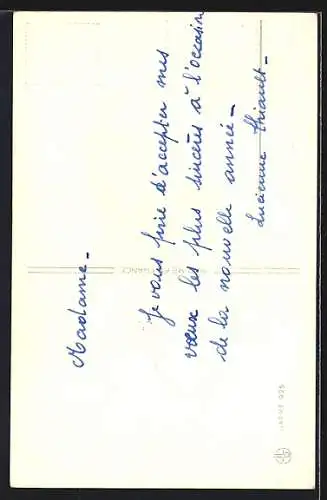 Madame -
Je vous prie d'accepter mes
vœux les plus sincères à l'occasion
de la nouvelle année -
Lucienne Thiault -